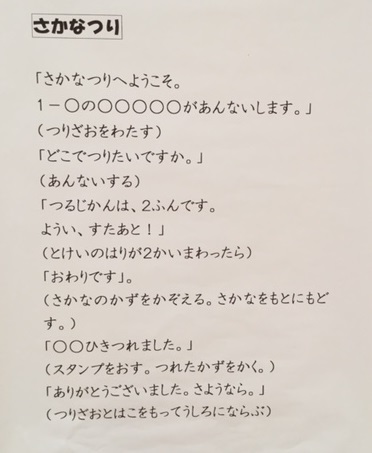 さかなつり
「さかなつりへようこそ。
１－〇の〇〇〇〇〇があんないします。」
（つりざおをわたす）
「どこでつりたいですか。」
（あんないする）
「つるじかんは、２ふんです。
ようい、すたあと！」
（とけいのはりが２かいまわったら）
「おわりです」。
（さかなのかずをかぞえる。さかなをもとにもど
す。）
「〇〇ひきつれました。」
（スタンプをおす。つれたかずをかく。）
「ありがとうございました。さようなら。」
（つりざおとはこをもってうしろにならぶ）